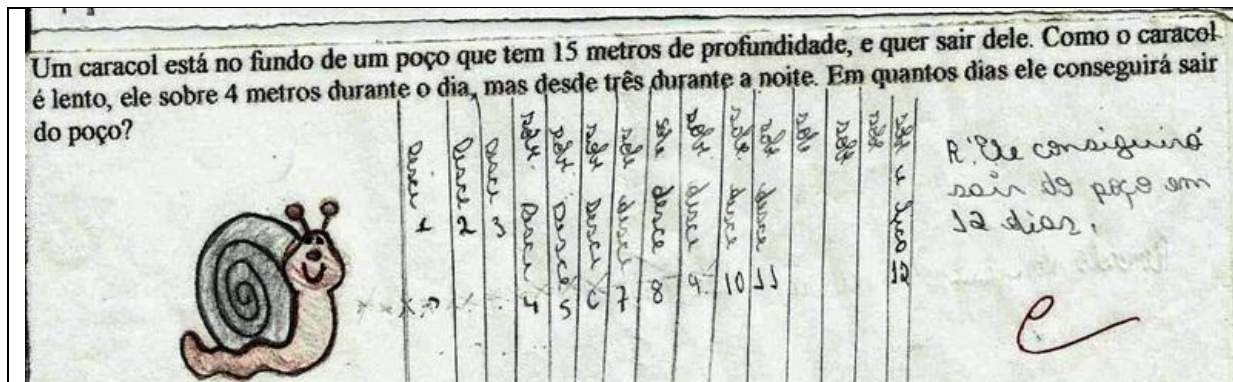 Um caracol está no fundo de um poço que tem 15 metros de profundidade, e quer sair dele. Como o caracol
é lento, ele sobre 4 metros durante o dia, mas desde três durante a noite. Em quantos dias ele conseguirá sair
do poço?
Desce 1
Desce 2
Desce 3
Desce 4
Desce 5
Desce 6
desce 7
sobe desce 8
desce 9
desce 10
desce 11
12
R: Ele consiguirá
sair do poço em
12 dias.